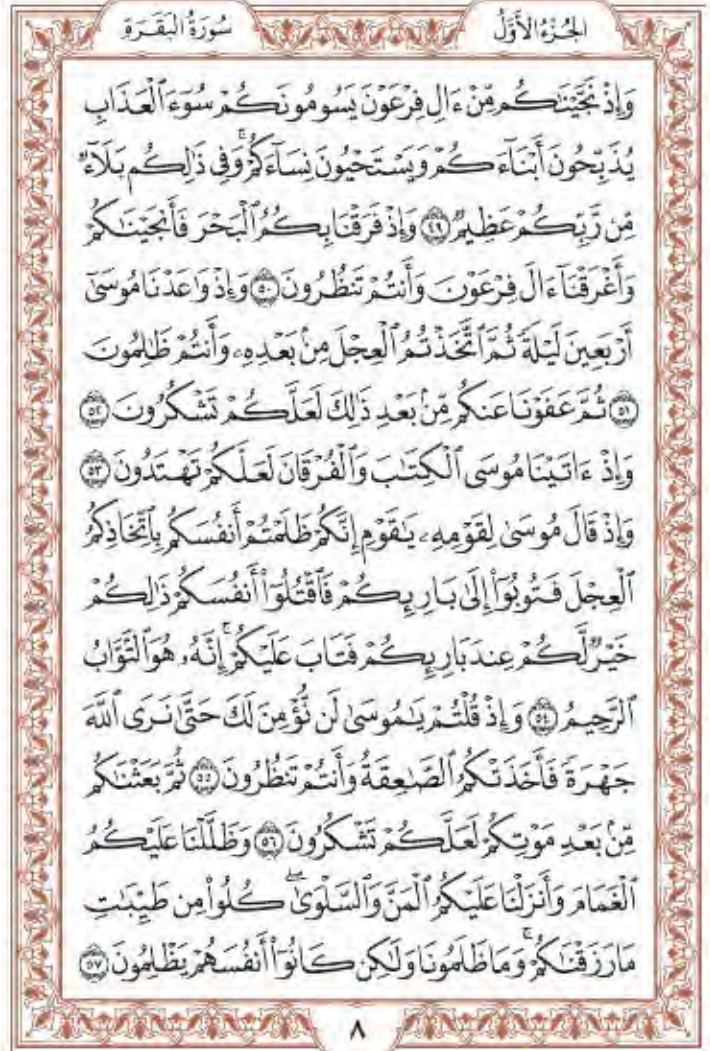 الجُزْءُ الأَوَّلُ
سُورَةُ البَقَرَةِ
وَإِذْ نَجَّيْنَـٰكُم مِّنْ ءَالِ فِرْعَوْنَ يَسُومُونَكُمْ سُوٓءَ ٱلْعَذَابِ
يُذَبِّحُونَ أَبْنَآءَكُمْ وَيَسْتَحْيُونَ نِسَآءَكُمْ ۚ وَفِى ذَٰلِكُم بَلَآءٌ
مِّن رَّبِّكُمْ عَظِيمٌ ٤٩ وَإِذْ فَرَقْنَا بِكُمُ ٱلْبَحْرَ فَأَنجَيْنَـٰكُمْ
وَأَغْرَقْنَآ ءَالَ فِرْعَوْنَ وَأَنتُمْ تَنظُرُونَ ٥٠ وَإِذْ وَٰعَدْنَا مُوسَىٰٓ
أَرْبَعِينَ لَيْلَةً ثُمَّ ٱتَّخَذْتُمُ ٱلْعِجْلَ مِنۢ بَعْدِهِۦ وَأَنتُمْ ظَـٰلِمُونَ
٥١ ثُمَّ عَفَوْنَا عَنكُم مِّنۢ بَعْدِ ذَٰلِكَ لَعَلَّكُمْ تَشْكُرُونَ ٥٢
وَإِذْ ءَاتَيْنَا مُوسَى ٱلْكِتَـٰبَ وَٱلْفُرْقَانَ لَعَلَّكُمْ تَهْتَدُونَ ٥٣
وَإِذْ قَالَ مُوسَىٰ لِقَوْمِهِۦ يَـٰقَوْمِ إِنَّكُمْ ظَلَمْتُمْ أَنفُسَكُم بِٱتِّخَاذِكُمُ
ٱلْعِجْلَ فَتُوبُوٓا۟ إِلَىٰ بَارِئِكُمْ فَٱقْتُلُوٓا۟ أَنفُسَكُمْ ذَٰلِكُمْ
خَيْرٌ لَّكُمْ عِندَ بَارِئِكُمْ فَتَابَ عَلَيْكُمْ ۚ إِنَّهُۥ هُوَ ٱلتَّوَّابُ
ٱلرَّحِيمُ ٥٤ وَإِذْ قُلْتُمْ يَـٰمُوسَىٰ لَن نُّؤْمِنَ لَكَ حَتَّىٰ نَرَى ٱللَّهَ
جَهْرَةً فَأَخَذَتْكُمُ ٱلصَّـٰعِقَةُ وَأَنتُمْ تَنظُرُونَ ٥٥ ثُمَّ بَعَثْنَـٰكُم
مِّنۢ بَعْدِ مَوْتِكُمْ لَعَلَّكُمْ تَشْكُرُونَ ٥٦ وَظَلَّلْنَا عَلَيْكُمُ
ٱلْغَمَامَ وَأَنزَلْنَا عَلَيْكُمُ ٱلْمَنَّ وَٱلسَّلْوَىٰ ۖ كُلُوا۟ مِن طَيِّبَـٰتِ
مَا رَزَقْنَـٰكُمْ ۚ وَمَا ظَلَمُونَا وَلَـٰكِن كَانُوٓا۟ أَنفُسَهُمْ يَظْلِمُونَ ٥٧
٨